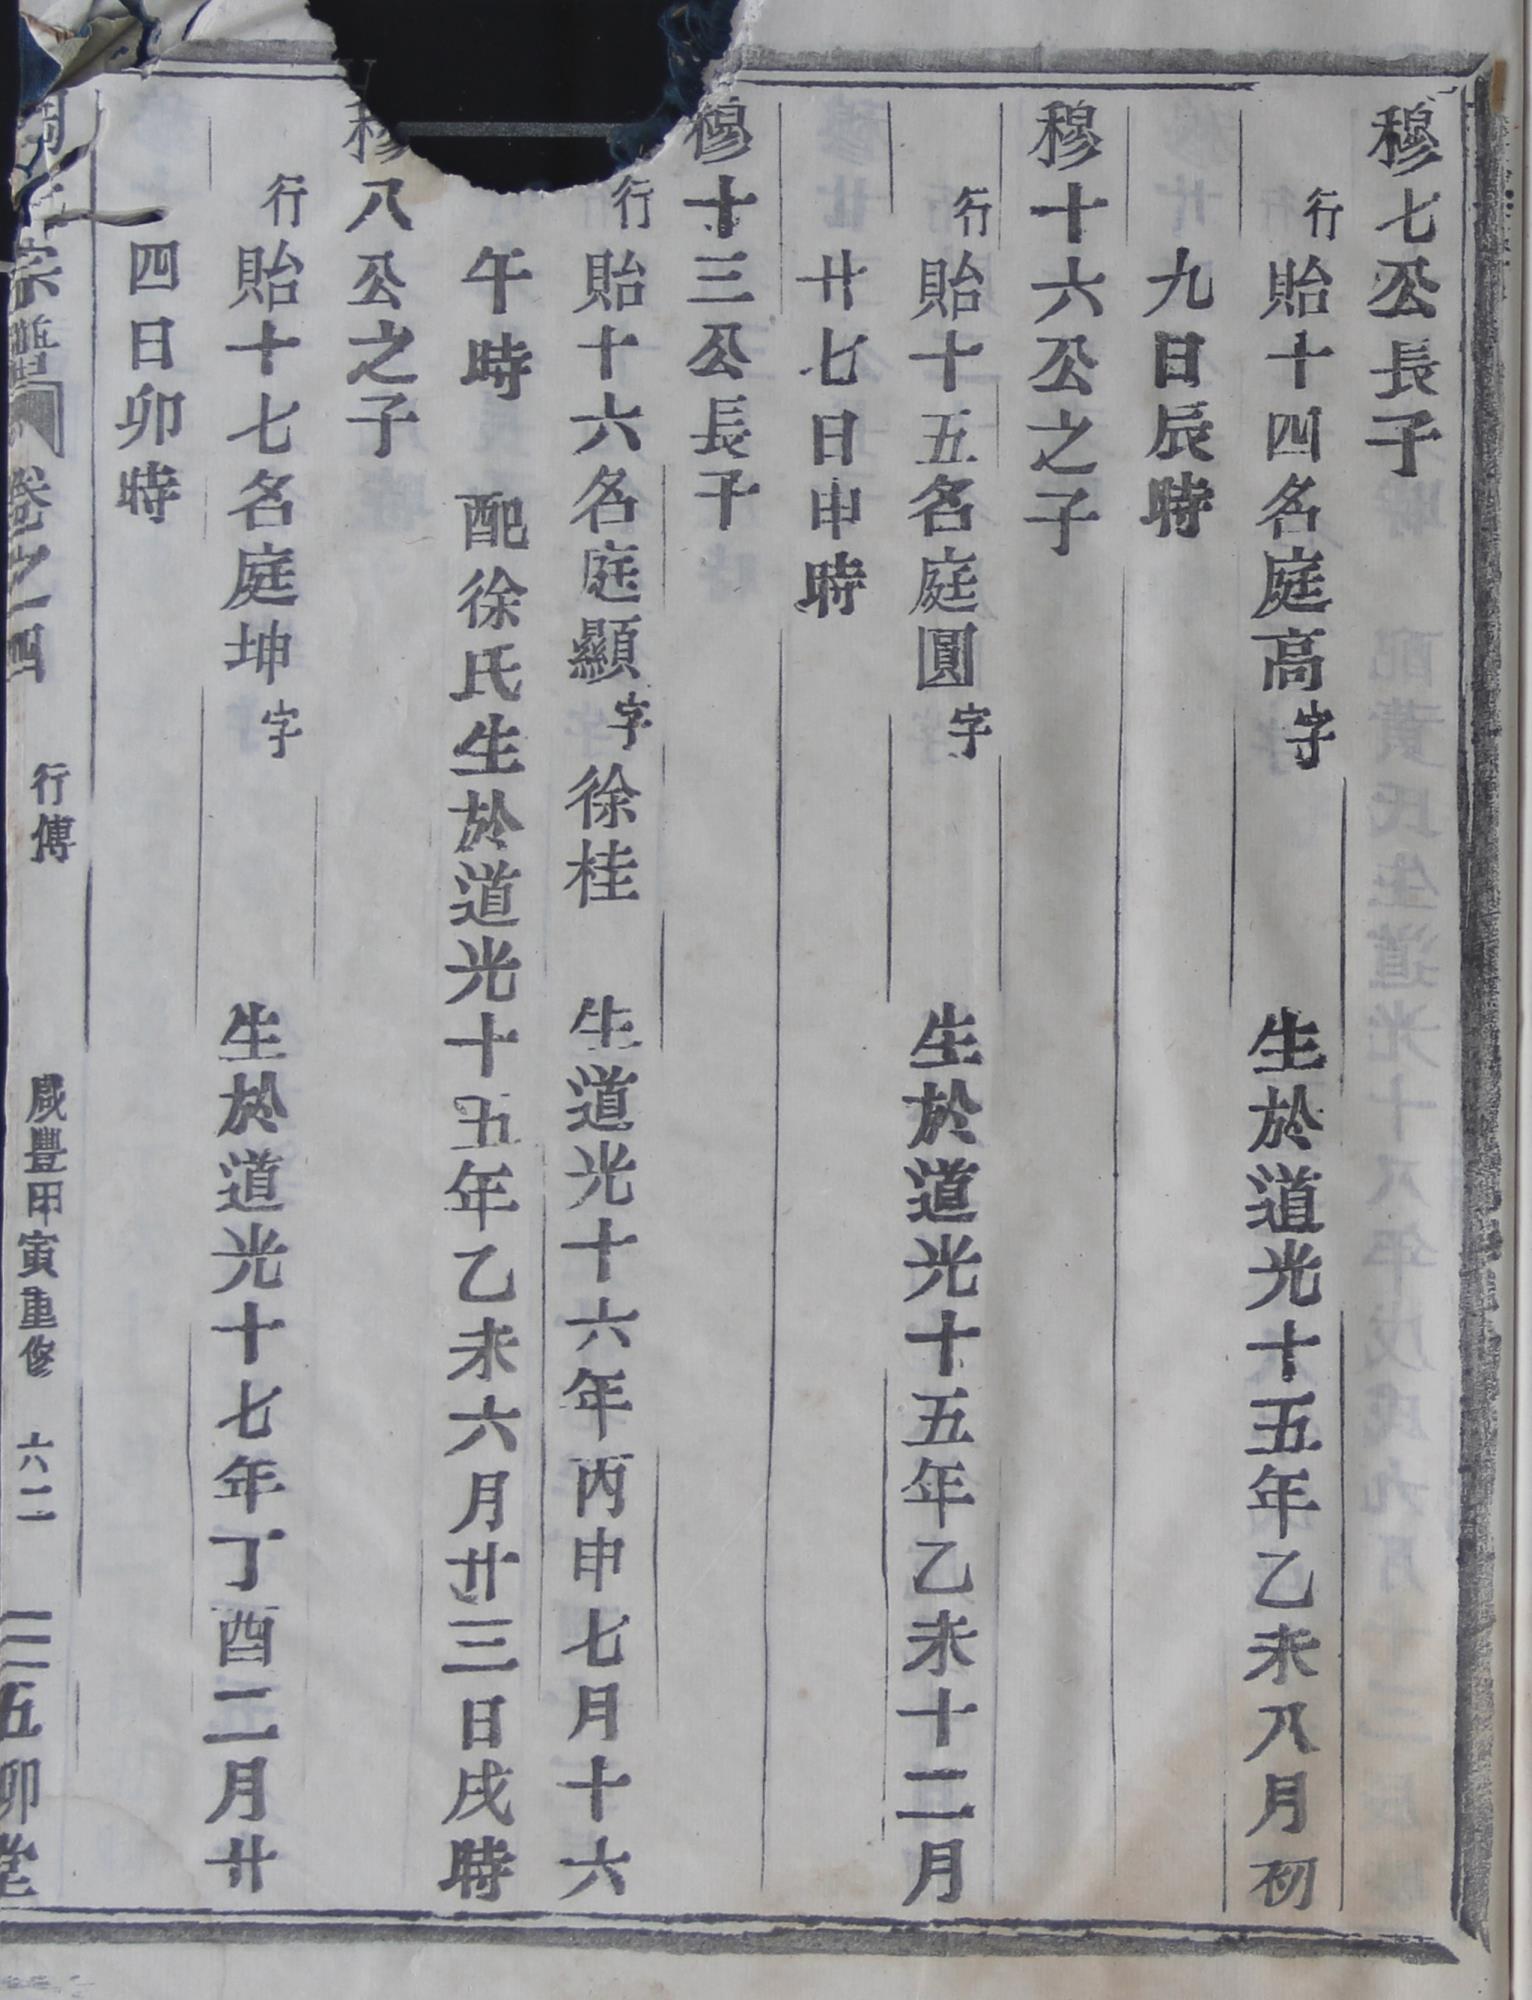 穆七公長子
行貽十四名庭高字 生於道光十五年乙未八月初
九日辰時
穆十六公之子
行貽十五名庭圓字 生於道光十五年乙未十二月
廿七日申時
穆十三公長子
行貽十六名庭顯字徐桂 生道光十六年丙申七月十六
午時 配徐氏生於道光十五年乙未六月廿三日戌時
穆八公之子
行貽十七名庭坤字 生於道光十七年丁酉二月廿
四日卯時
宗譜 卷之四 行傳 咸豐甲寅重修 六二 三五卯堂